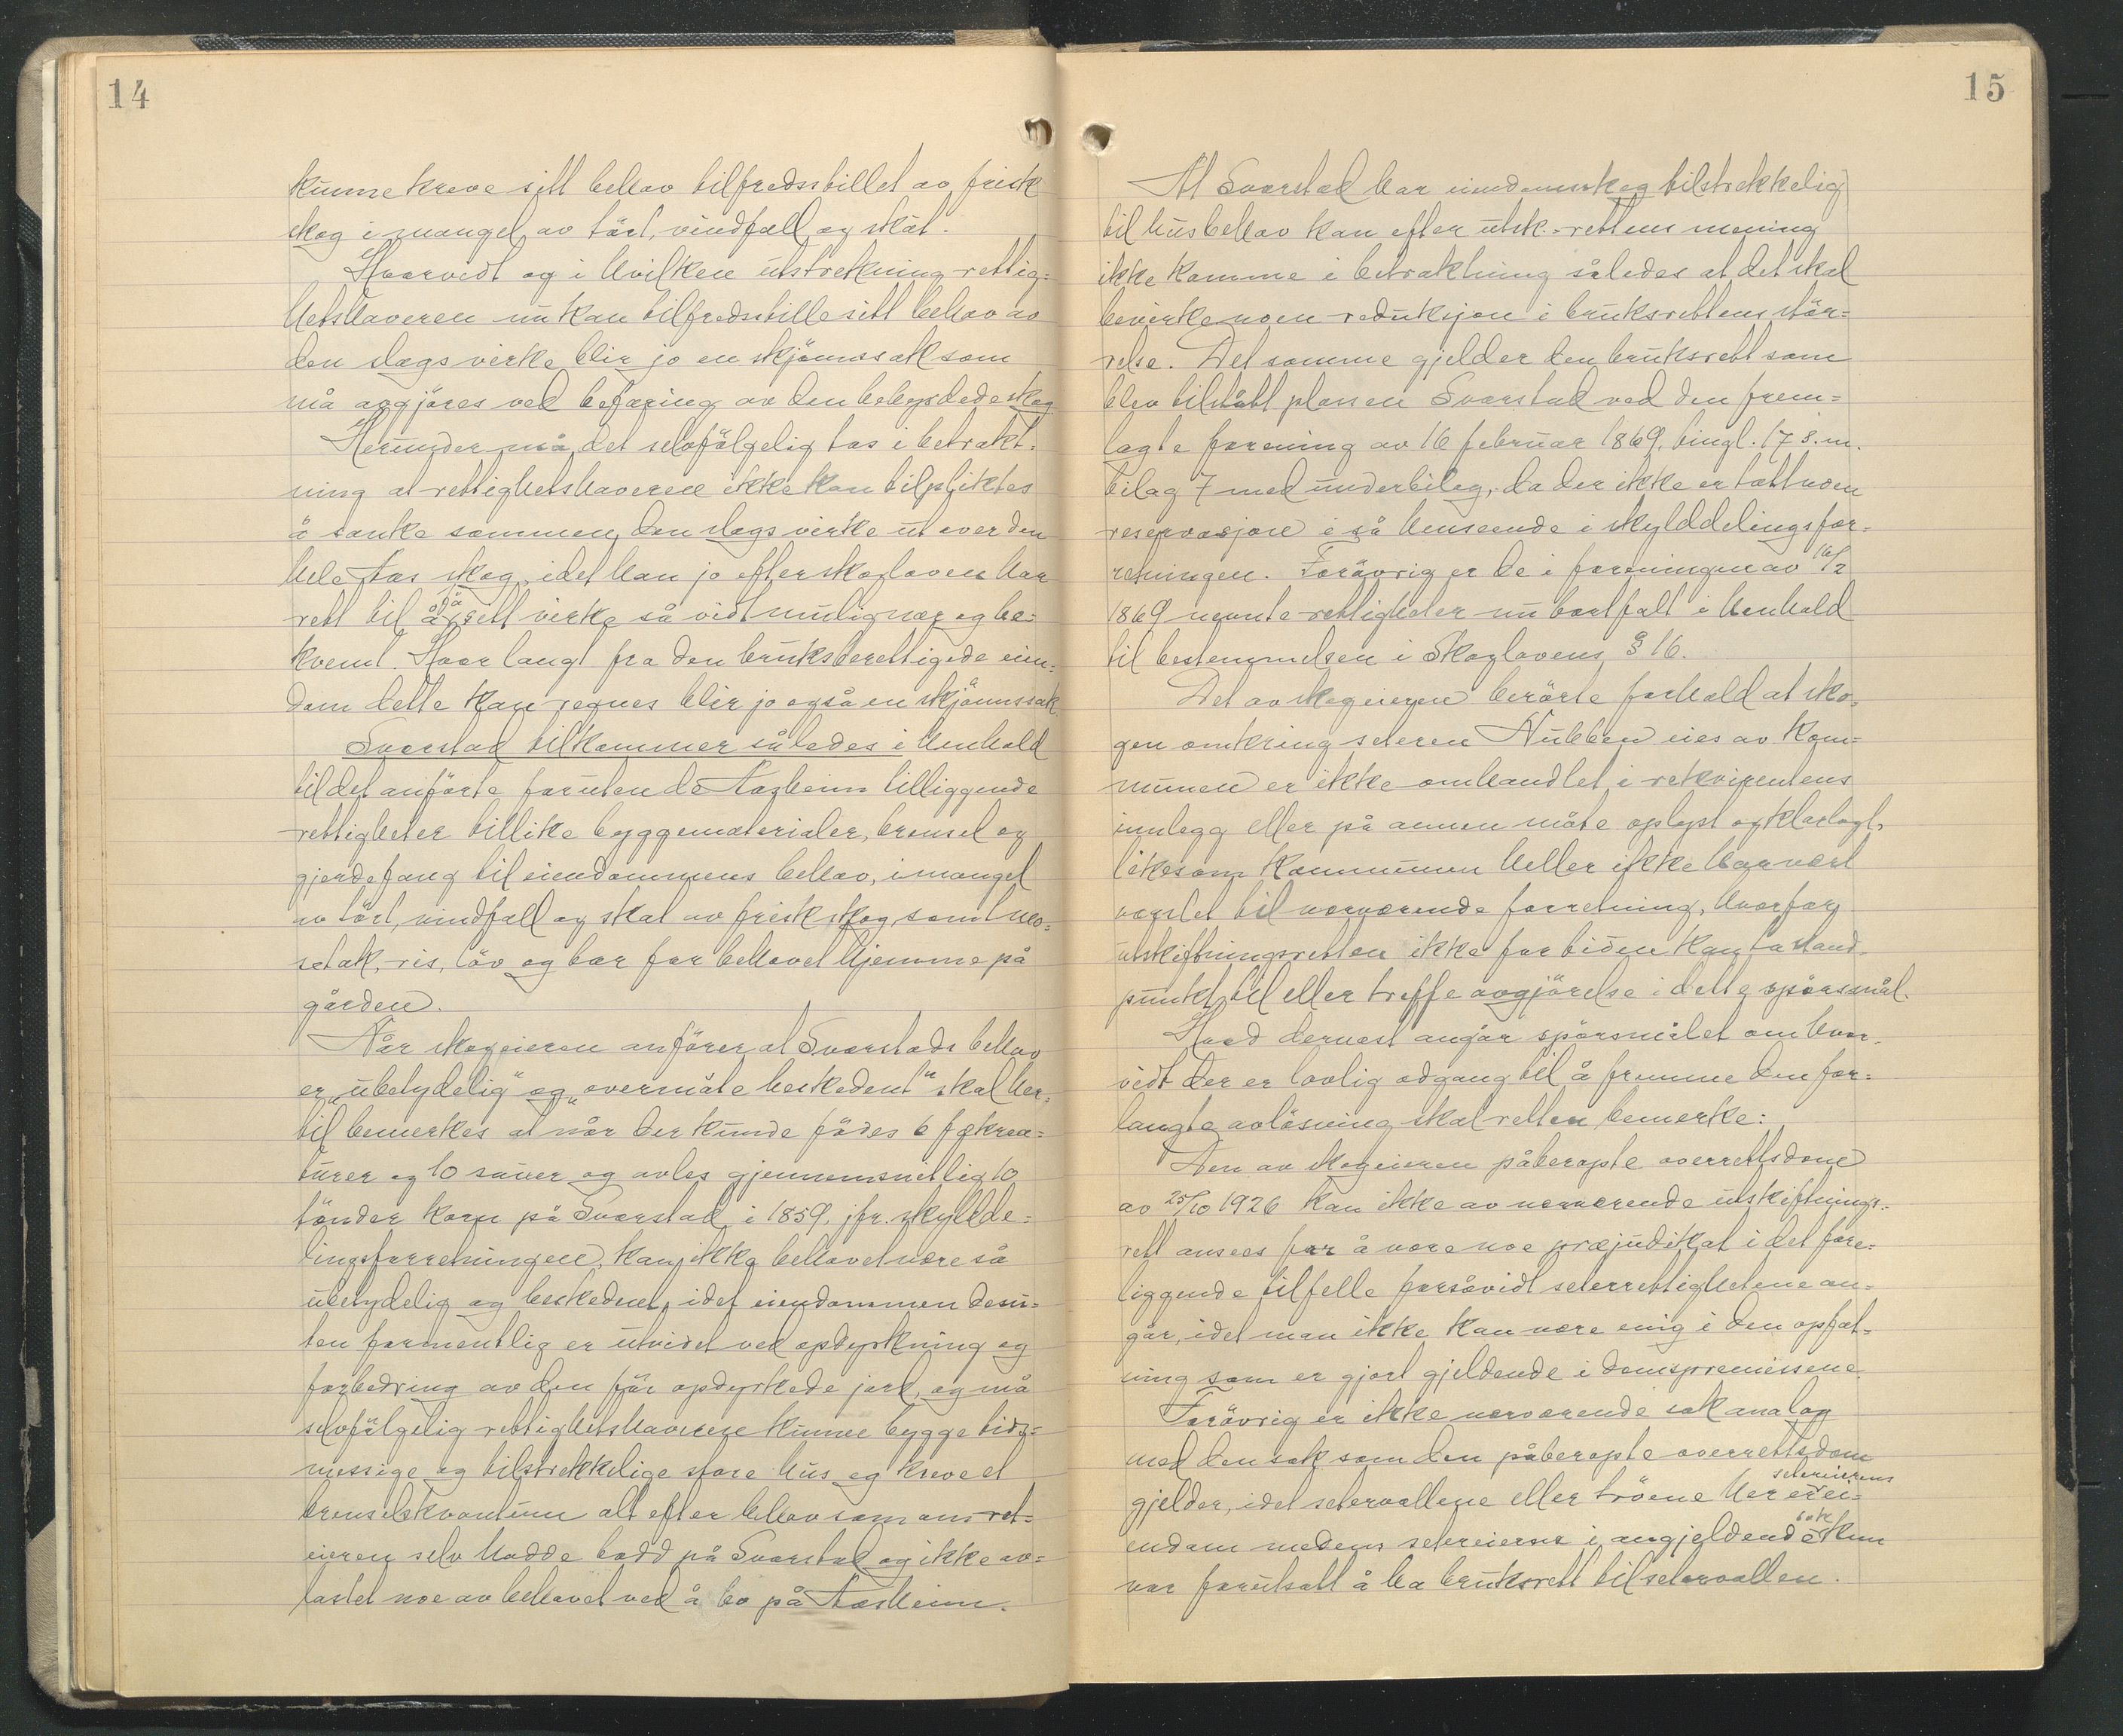 14
kunne kreve sitt behov tilfredsstillet av frisk
skog i mangel av tört, vindfall og skat.
Hvorvidt og i hvilken utstrekning rettig-
hetshaveren nu kan tilfredsstille sitt behov av
den slags virke blir jo en skjönnssak som
må avgjöres ved befaring av den bebyrdede skog
Herunder må det selvfölgelig tas i betrakt-
ning at rettighetshaveren ikke kan tilpliktes
å sanke sammen den slags virke utover den
hele Aas skog, idet han jo efter skogloven har
rett til å få sitt virke så vidt mulig nær og be-
kvemt. Hvor langt fra den bruksberettigede eien-
dom dette kan regnes blir jo også en skjönnssak
Svarstad tilkommer således i henhold
til det anförte foruten de Aasheim tilliggende
rettigheter tillike byggematerialer, brensel og
gjerdefang til eiendommens behov, i mangel
av tört, vindfall og skat av frisk skog, samt mo-
setak, ris, löv og bar for behovet hjemme på
gården.
Når skogeieren anförer at Svarstads behov
er „ubetydelig" og „overmåte beskedent" skal her-
til bemerkes at når der kunde födes 6 fækrea-
turer og 10 sauer og avles gjennemsnitlig 10
tönder korn på Svarstad i 1859, jfr. skyldde-
lingsforretningen, kan ikke behovet være så
ubetydelig og beskedent, idet eiendommen desu-
ten formentlig er utvidet ved opdyrkning og
forbedring av den för opdyrkede jord, og må
selvfölgelig rettighetshaverne kunne bygge tids-
messige og tilstrekkelige store hus og kreve et
brenselskvantum alt efter behov som om ret-
eieren selv hadde bodd på Svarstad og ikke av-
lastet noe av behovet ved å bo på Aasheim.
15
At Svarstad har eiendomsskog tilstrekkelig
til husbehov kan efter utsk.-rettens mening
ikke komme i betraktning således at det skal
bevirke noen reduksjon i bruksrettens stör-
relse. Det samme gjelder den bruksrett som
blev tilstått plassen Svarstad ved den frem-
lagte forening av 16 februar 1869, tingl. 17 s.m.
bilag 7 med underbilag, da der ikke er tatt noen
reservasjon i så henseende i skylddelingsfor-
retningen. Forövrig er de i foreningen av 16/2
1869 nevnte rettigheter nu bortfalt i henhold
til bestemmelsen i Skoglovens § 16.
Det av skogeieren berörte forhold at sko-
gen omkring seteren Nubben eies av kom-
munen er ikke omhandlet i rekvirentens
innlegg eller på annen måte oplyst og klarlagt,
likesom kommunen heller ikke har vært
varslet til nærværende forretning, hvorfor
utskiftningsretten ikke for tiden kan ta stand-
punkt til eller treffe avgjörelse i dette spörsmål.
Hvad dernæst angår spörsmålet om hvor-
vidt der er lovlig adgang til å fremme den for-
langte avlösning skal retten bemerke:
Den av skogeieren påberopte overrettsdom
av 25/10 1926 kan ikke av nærværende utskiftnings-
rett ansees for å være noe prejudikat i det fore-
liggende tilfelle forsåvidt seterrettighetene an-
går, idet man ikke kan være enig i den opfat-
ning som er gjort gjeldende i domspremissene.
Forövrig er ikke nærværende sak analog
med den sak som den påberopte overrettsdom
gjelder, idet setervollene eller tröene her er setereierens ei-
endom medens setereierne i angjeldende sak kun
var forutsatt å ha bruksrett til setervollen.